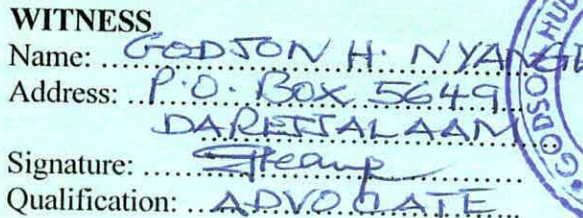 WITNESS
Name: GODSON H. NYANGE
Address: P.O. BOX 5649
DARESSALAAM
Signature:
Qualification: ADVOCATE
GODSON HUD